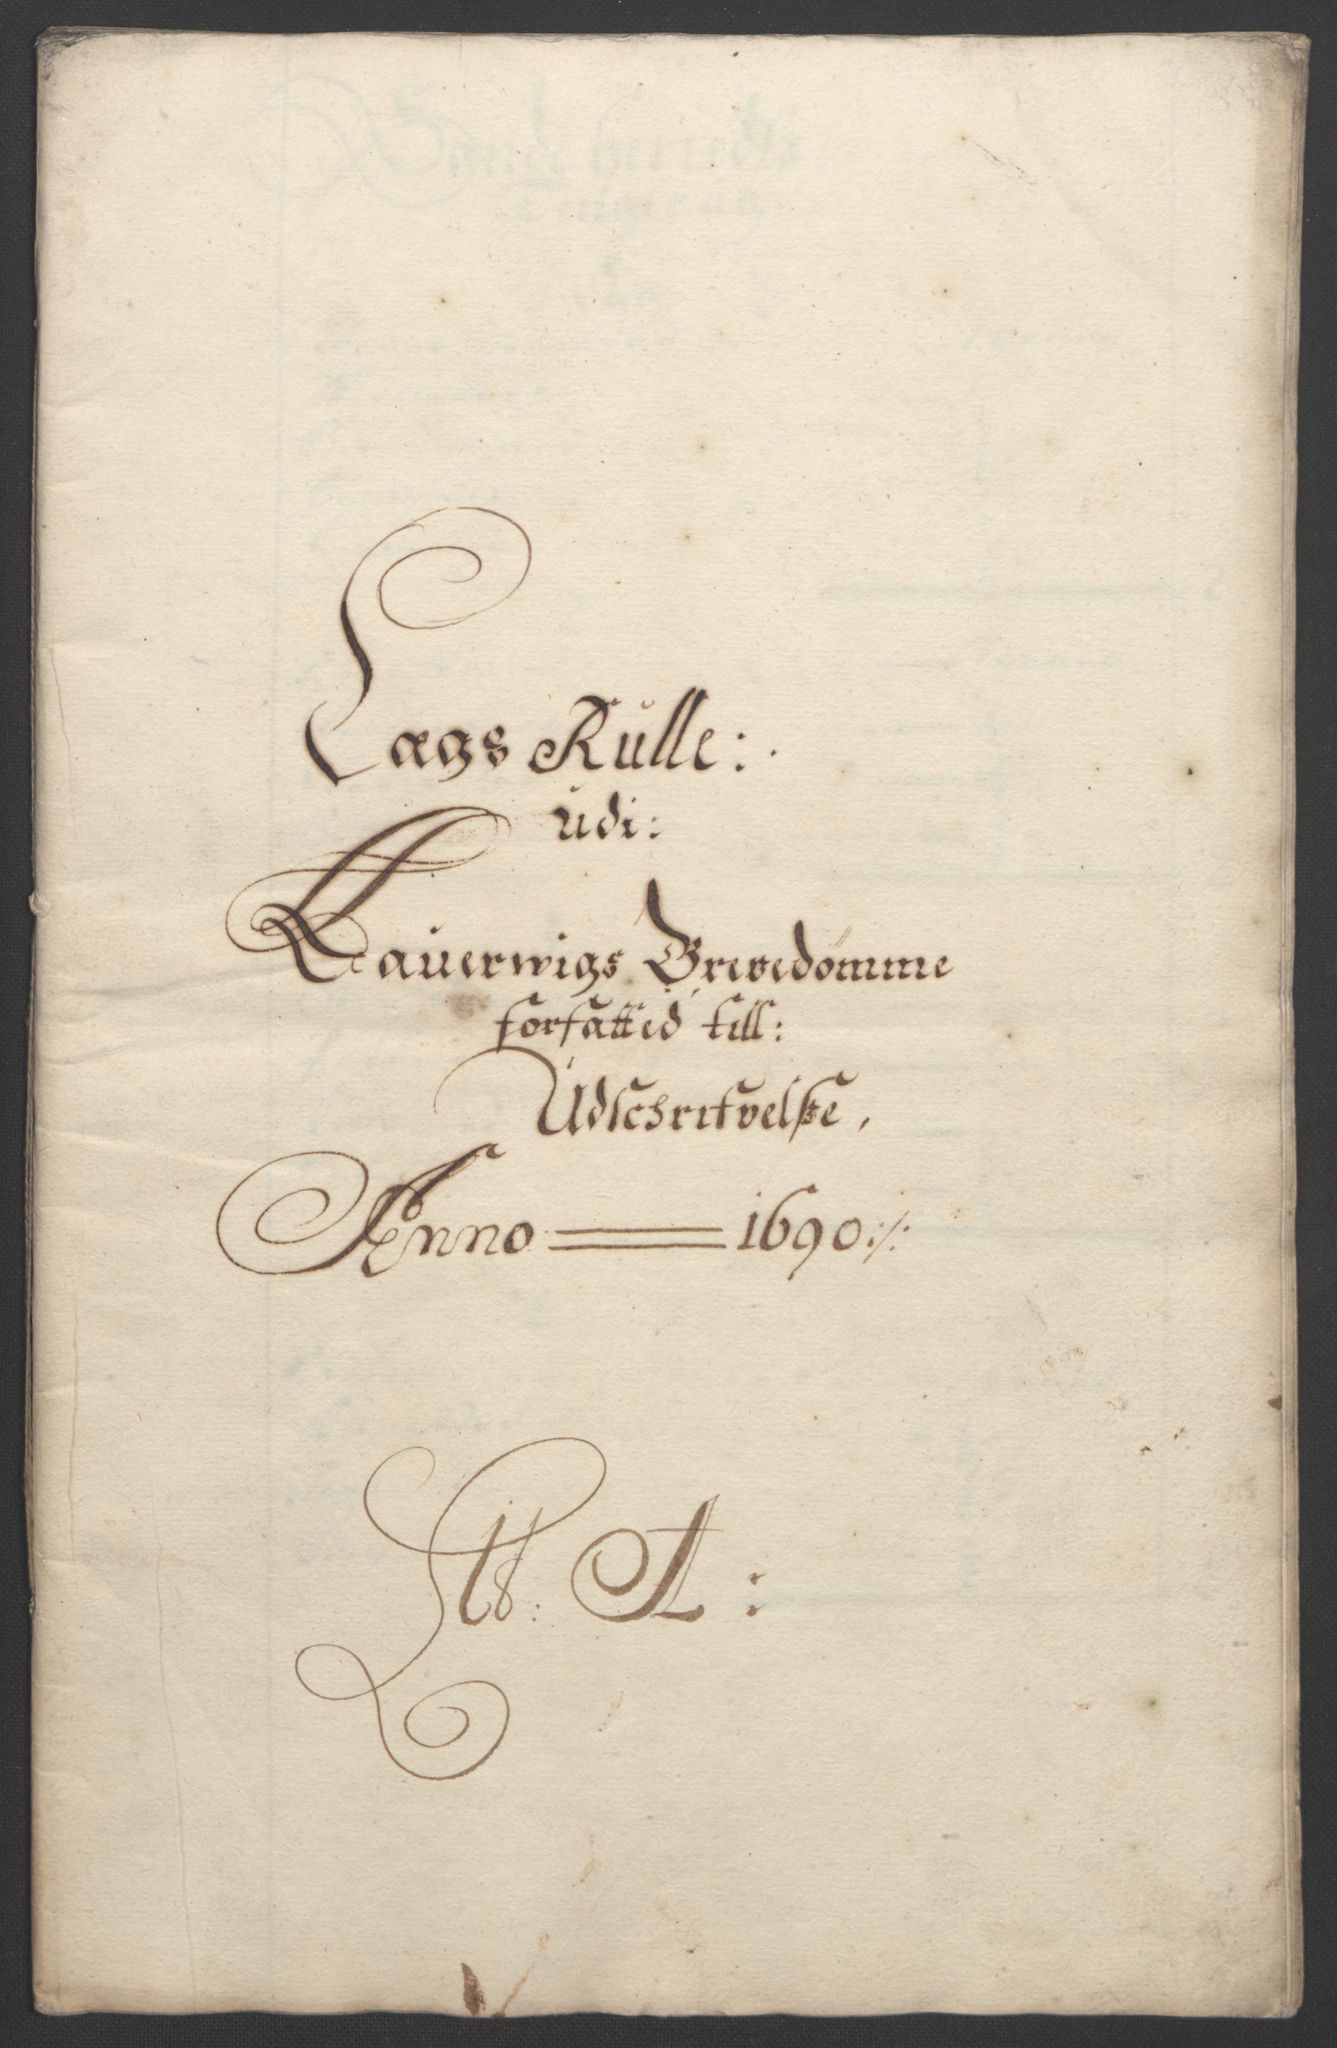 Lægs Rulle:
udi:
Laŭerwigs Grevedomme
forfatted till:
Udschrifvelsse,
Anno 1690:/:
Ltr: A: